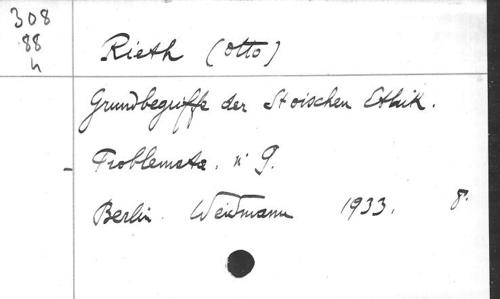 308
88
h
Rieth (Otto)
Grundbegriffe der Stoischen Ethik.
Problemata. n° 9.
Berlin. Weidmann 1933. 8°.